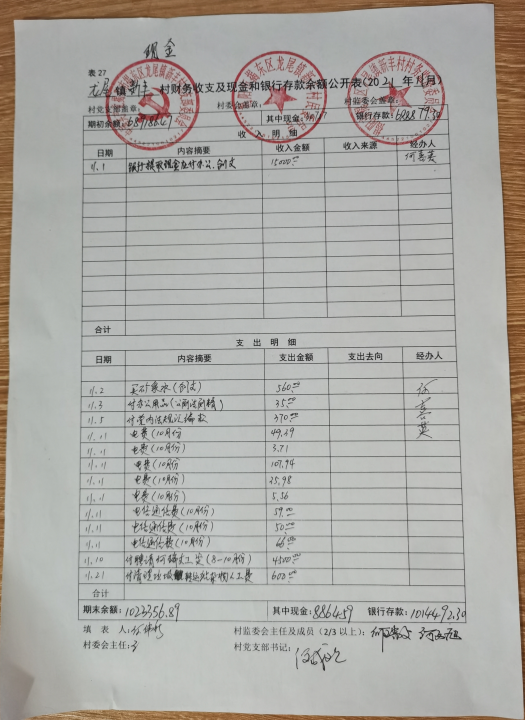 现金
表27
龙尾镇新丰村财务收支及现金和银行存款余额公开表(2021年11月)
村党支部盖章: 村委会盖章: 村监委会盖章:
期初余额: 其中现金: 银行存款:
收入明细
日期 内容摘要 收入金额 收入来源 经办人
11.1 银行提取现金应付办公、创文 15000.00 何喜英
合计
支出明细
日期 内容摘要 支出金额 支出去向 经办人
11.2 买矿泉水(创文) 560.00
11.3 付办公用品 35.00
11.5 付党内法规汇编款 370.00
11.11 电费(10月份) 49.29
11.11 电费(10月份) 3.71
11.11 电费(10月份) 107.94
11.11 电费(10月份) 25.98
11.11 电费(10月份) 5.56
11.11 电信通信费(10月份) 59.00
11.11 电信通信费(10月份) 50.00
11.11 电信通信费(10月份) 66.00
11.10 付聘请何锡文工资(8-10月份) 4500.00
11.21 付清理垃圾 人工费 600.00
合计
期末余额:1023356.89 其中现金:8864.59 银行存款:1014492.30
填表人: 村监委会主任及成员(2/3以上):
村委会主任: 村党支部书记: